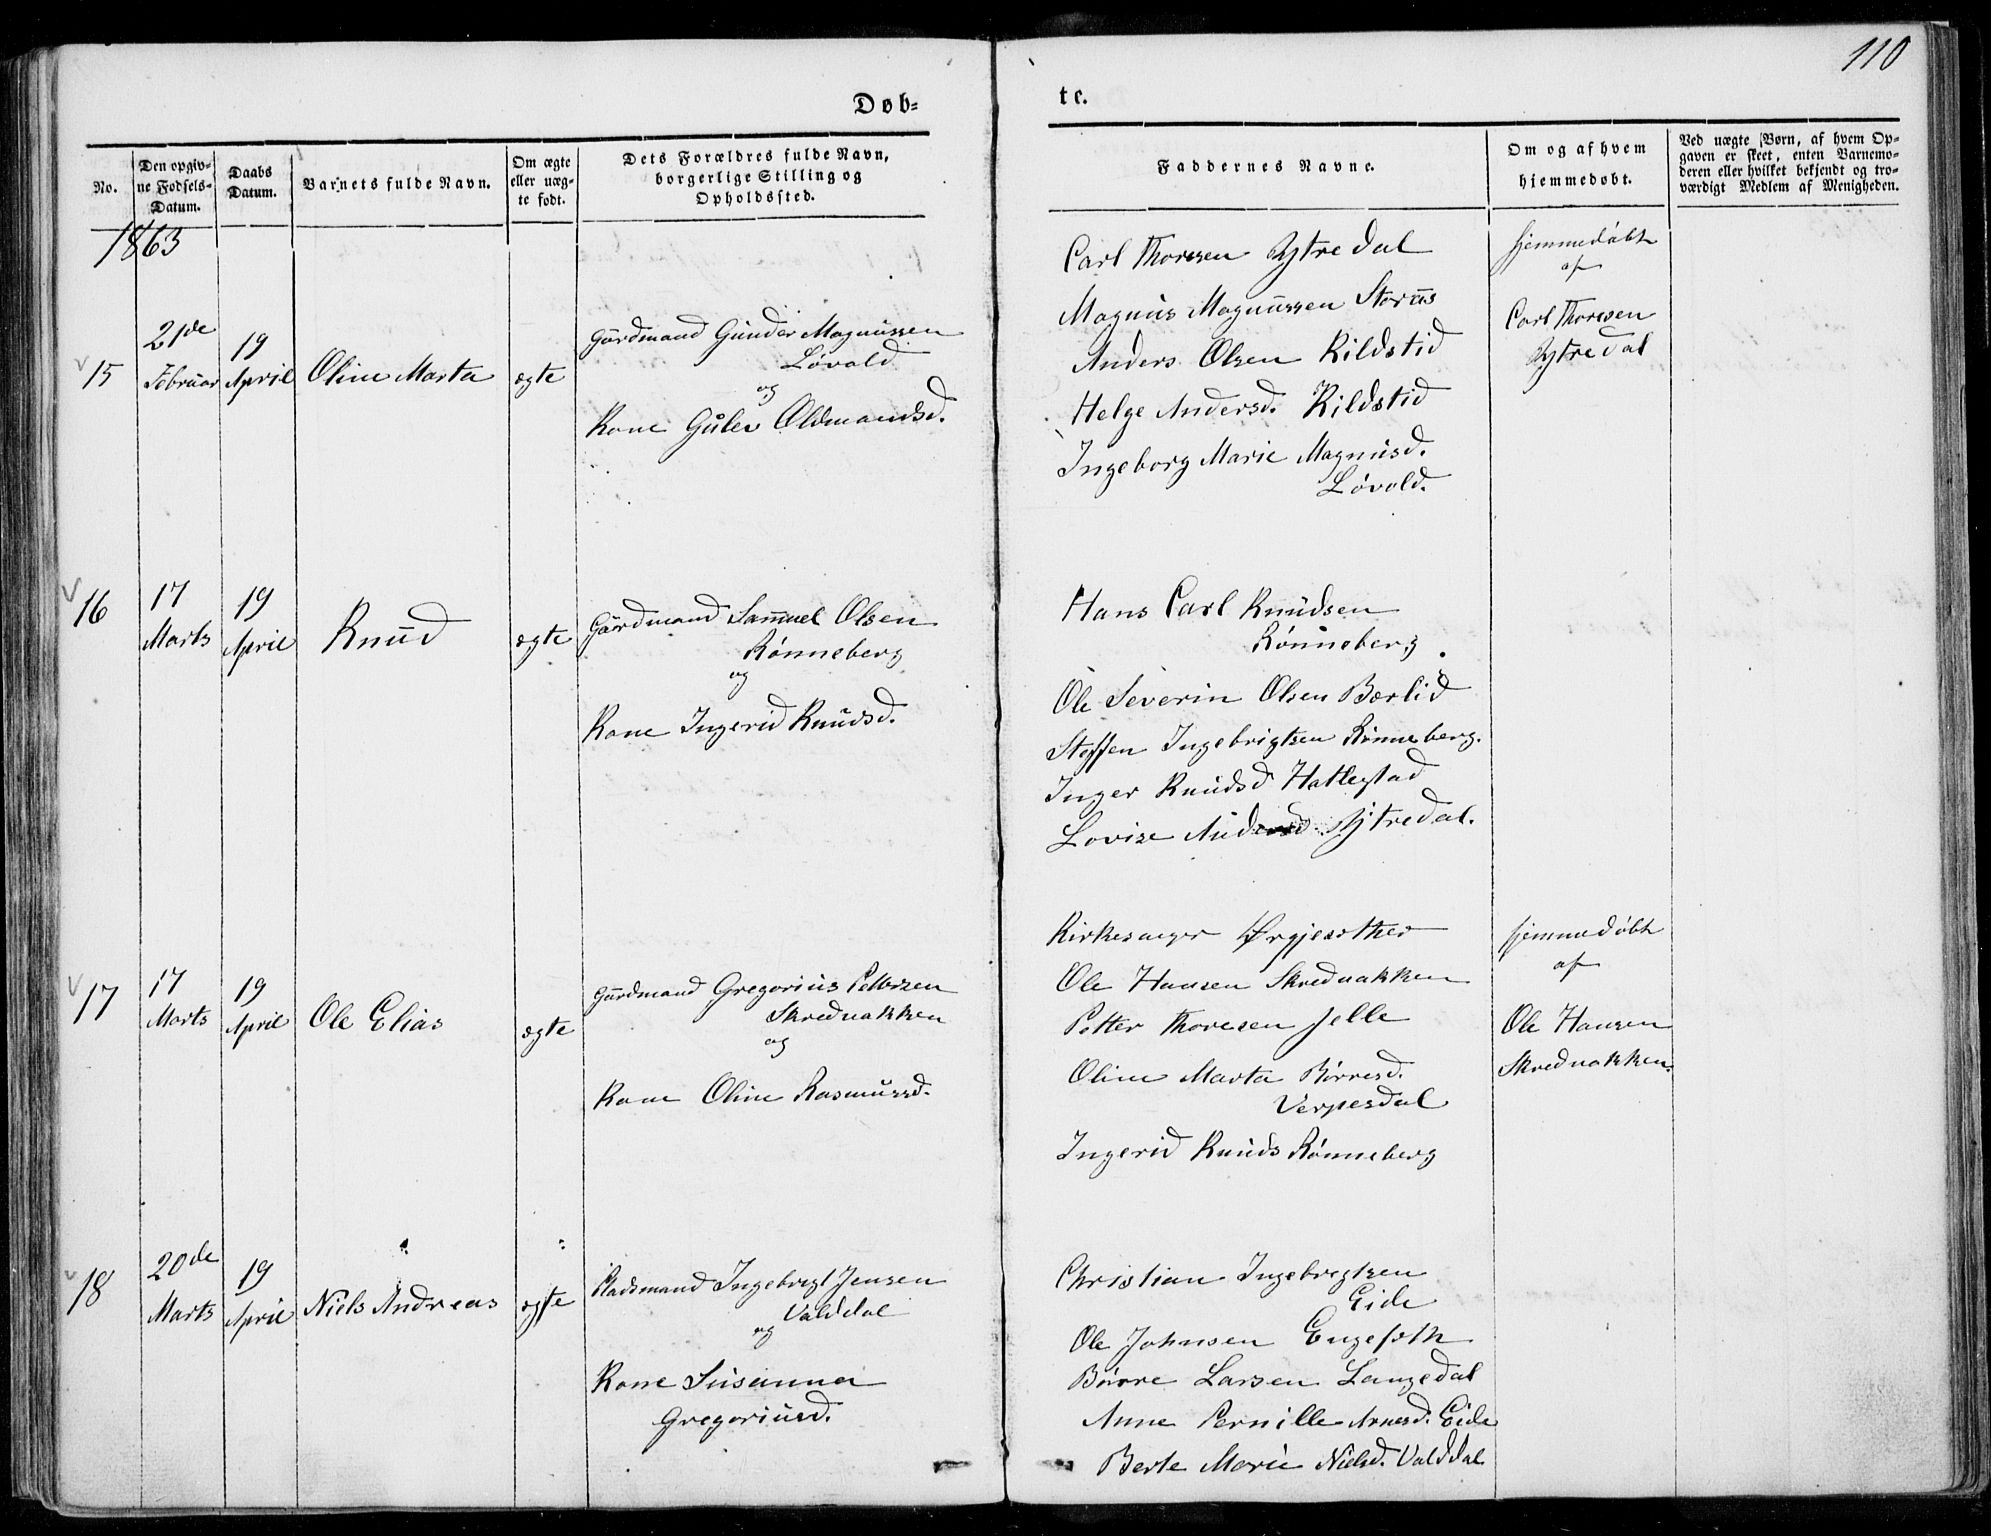 110
Døb-
te.
No.
Den opgiv-
ne Fødsels-
Datum.
Daabs
Datum.
Barnets fulde Navn.
Om ægte
eller uæg-
te født.
Dets Forældres fulde Navn,
borgerlige Stilling og
Opholdssted.
Faddernes Navne.
Om og af hvem
hjemmedøbt.
Ved uægte Børn, af hvem Op-
gaven er skeet, enten Barnemo-
deren eller hvilket bekjendt og tro-
værdigt Medlem af Menigheden.
1863
15
21de
Februar
19
April
Oline Marta
ægte
Gårdmand Gunder Magnussen
Løvold
og
Kone Gulev Oldmandsd.
Carl Thoresen Ytredal
Magnus Magnussen Storås
Anders Olsen Kildstid
Helge Andersd. Kildstid
Ingeborg Marie Magnusd.
Løvold.
hjemmedøbt
af
Carl Thoresen
Ytredal
16
17
Marts
19
April
Knud
ægte
Gårdmand Samuel Olsen
Rønneberg
og
Kone Ingerid Knudsd.
Hans Carl Knudsen
Rønneberg.
Ole Severin Olsen Bærlid
Steffen Ingebrigtsen Rønneberg.
Inger Knudsd Hattestad
Lovise Andersd Ytredal.
17
17
Marts
19
April
Ole Elias
ægte
Gårdmand Gregorius Pettersen
Skrednakken
og
Kone Oline Rasmussd.
Kirkesanger Ørgjesether
Ole Hansen Skrednakken
Petter Thoresen Jelle
Oline Marta Børresd.
Verpesdal
Ingerid Knuds Rønneberg
hjemmedøbt
af
Ole Hansen
Skrednakken.
18
20de
Marts
19
April
Niels Andreas
ægte
Pladsmand Ingebrigt Jensen
Valddal
og
Kone Susanna
Gregoriusd.
Christian Ingebrigtsen
Eide
Ole Johnsen Engeseth
Børre Larsen Langedal
Anne Pernille Arnesd. Eide
Berte Marie Nielsd. Valddal